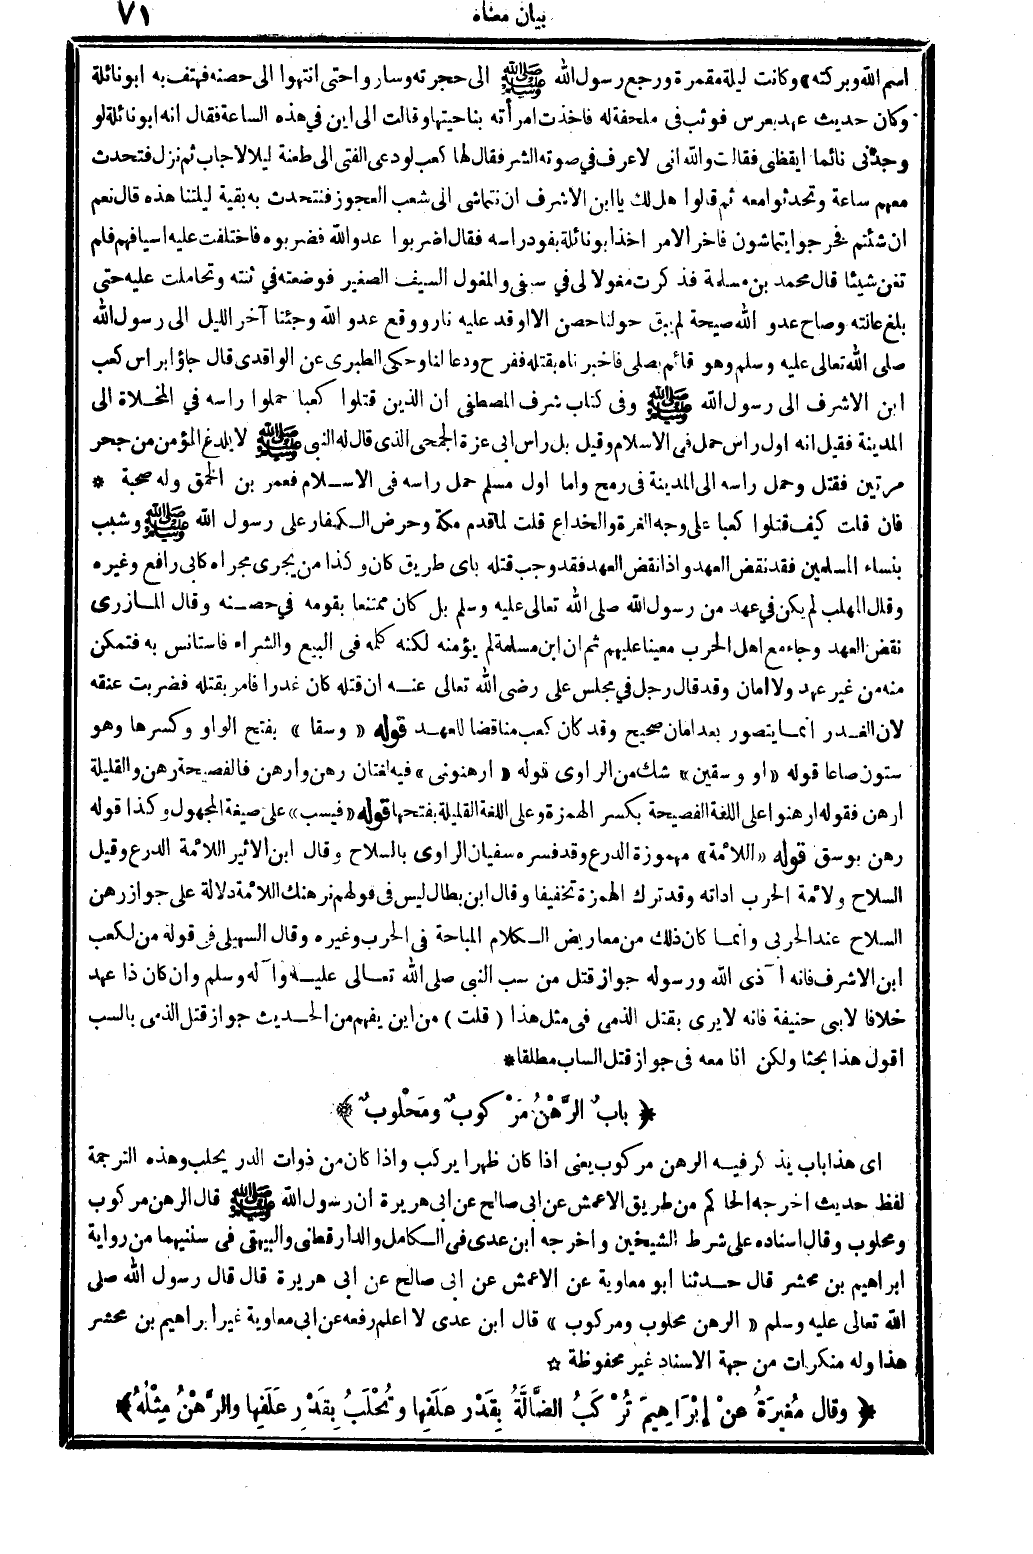 بيان معناه
٧١
اسم الله وبركته» وكانت ليلة مقمرة ورجع رسول الله ﷺ الى حجرته وساروا حتى انتهوا الى حصنه فهتف به ابو نائلة
وكان حديث عهد بعرس فوثب فى ملحفة له فاخذت امرأته بناحيتها وقالت الى اين في هذه الساعة فقال انه ابو نائلة لو
وجدنى نائما ايقظنى فقالت والله انى لاعرف في صوته الشر فقال لها كعب لو دعى الفتى الى طعنة ليلا لاجاب ثم نزل فتحدث
معهم ساعة وتحدثوا معه ثم قالوا هل لك يا ابن الاشرف ان نتماشى الى شعب العجوز فنتحدث به بقية ليلتنا هذه قال نعم
ان شئتم فخرجوا يتماشون فاخر الامر اخذ ابو نائلة بفود راسه فقال اضربوا عدو الله فضربوه فاختلفت عليه اسيافهم فلم
تغن شيئا قال محمد بن مسلمة فذكرت مغولا لى في سيفى والمغول السيف الصغير فوضعته في ثنته وتحاملت عليه حتى
بلغ عانته وصاح عدو الله صيحة لم يبق حولنا حصن الا اوقد عليه نار ووقع عدو الله وجئنا آخر الليل الى رسول الله
صلى الله تعالى عليه وسلم وهو قائم يصلى فاخبرناه بقتله ففرح ودعا لنا وحكى الطبرى عن الواقدى قال جاؤا براس كعب
ابن الاشرف الى رسول الله ﷺ وفى كتاب شرف المصطفى ان الذين قتلوا كعبا حملوا راسه في المخلاة الى
المدينة فقيل انه اول راس حمل فى الاسلام وقيل بل راس ابى عزة الجمحى الذى قال له النبى ﷺ لا يلدغ المؤمن من جحر
مرتين فقتل وحمل راسه الى المدينة فى رمح واما اول مسلم حمل راسه فى الاسلام فعمر بن الحمق وله صحبة *
فان قلت كيف قتلوا كعبا على وجه الغرة والخداع قلت لما قدم مكة وحرض الكفار على رسول الله ﷺ وشبب
بنساء المسلمين فقد نقض العهد واذا نقض العهد فقد وجب قتله باى طريق كان وكذا من يجرى مجراه كابى رافع وغيره
وقال المهلب لم يكن في عهد من رسول الله صلى الله تعالى عليه وسلم بل كان ممتنعا بقومه في حصنه وقال المازرى
نقض العهد وجاء مع اهل الحرب معينا عليهم ثم ان ابن مسلمة لم يؤمنه لكنه كلمه فى البيع والشراء فاستانس به فتمكن
منه من غير عهد ولا امان وقد قال رجل في مجلس على رضى الله تعالى عنه ان قتله كان غدرا فامر بقتله فضربت عنقه
لان الغدر انما يتصور بعد امان صحيح وقد كان كعب مناقضا للعهد قوله «وسقا» بفتح الواو وكسرها وهو
ستون صاعا قوله «او وسقين» شك من الراوى قوله «ارهنونى» فيه لغتان رهن وارهن فالفصيحة رهن والقليلة
ارهن فقوله ارهنوا على اللغة الفصيحة بكسر الهمزة وعلى اللغة القليلة بفتحها قوله «فيسب» على صيغة المجهول وكذا قوله
رهن بوسق قوله «اللأمة» مهموزة الدرع وقد فسره سفيان الراوى بالسلاح وقال ابن الأثير اللأمة الدرع وقيل
السلاح ولأمة الحرب اداته وقد ترك الهمزة تخفيفا وقال ابن بطال ليس فى قولهم نرهنك اللأمة دلالة على جواز رهن
السلاح عند الحربى وانما كان ذلك من معاريض الكلام المباحة فى الحرب وغيره وقال السهيلى فى قوله من لكعب
ابن الاشرف فانه آذى الله ورسوله جواز قتل من سب النبى صلى الله تعالى عليه وآله وسلم وان كان ذا عهد
خلافا لابى حنيفة فانه لا يرى بقتل الذمى فى مثل هذا (قلت) من اين يفهم من الحديث جواز قتل الذمى بالسب
اقول هذا بحثا ولكن انا معه فى جواز قتل الساب مطلقا*
﴿ بابٌ الرَّهْنُ مَرْكوبٌ ومَحْلوبٌ ﴾
اى هذا باب يذكر فيه الرهن مركوب يعنى اذا كان ظهرا يركب واذا كان من ذوات الدر يحلب وهذه الترجمة
لفظ حديث اخرجه الحاكم من طريق الاعمش عن ابى صالح عن ابى هريرة ان رسول الله ﷺ قال الرهن مركوب
ومحلوب وقال اسناده على شرط الشيخين واخرجه ابن عدى فى الكامل والدارقطنى والبيهقى فى سننيهما من رواية
ابراهيم بن محشر قال حدثنا ابو معاوية عن الاعمش عن ابى صالح عن ابى هريرة قال قال رسول الله صلى
الله تعالى عليه وسلم «الرهن محلوب ومركوب» قال ابن عدى لا اعلم رفعه عن ابى معاوية غير ابراهيم بن محشر
هذا وله منكرات من جهة الاسناد غير محفوظة ☆
﴿ وقال مُغِيرَةُ عنْ إبْرَاهِيمَ تُرْكَبُ الضَّالَّةُ بِقَدْرِ عَلَفِها وتُحْلَبُ بِقَدْرِ عَلَفِها والرَّهْنُ مِثْلُهُ ﴾